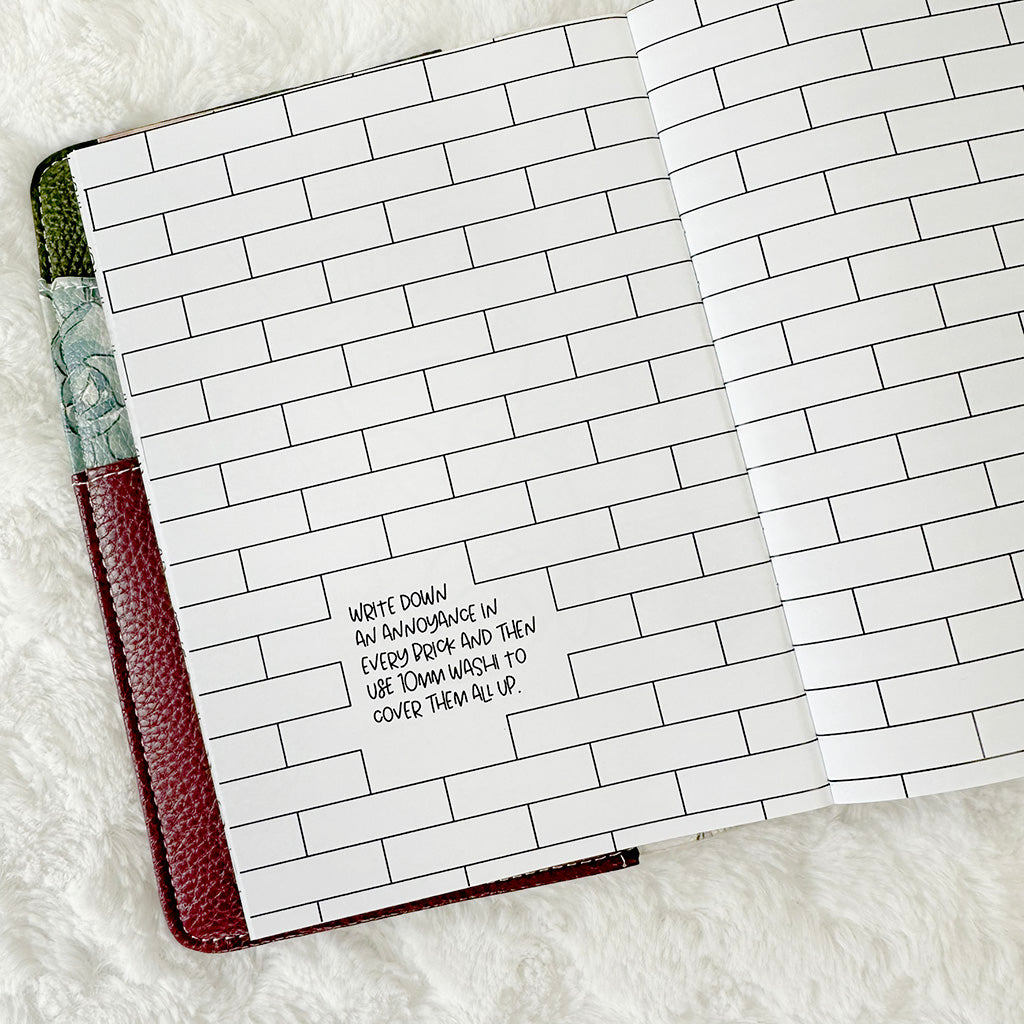 WRITE DOWN
AN ANNOYANCE IN
EVERY BRICK AND THEN
USE 10MM WASHI TO
COVER THEM ALL UP.